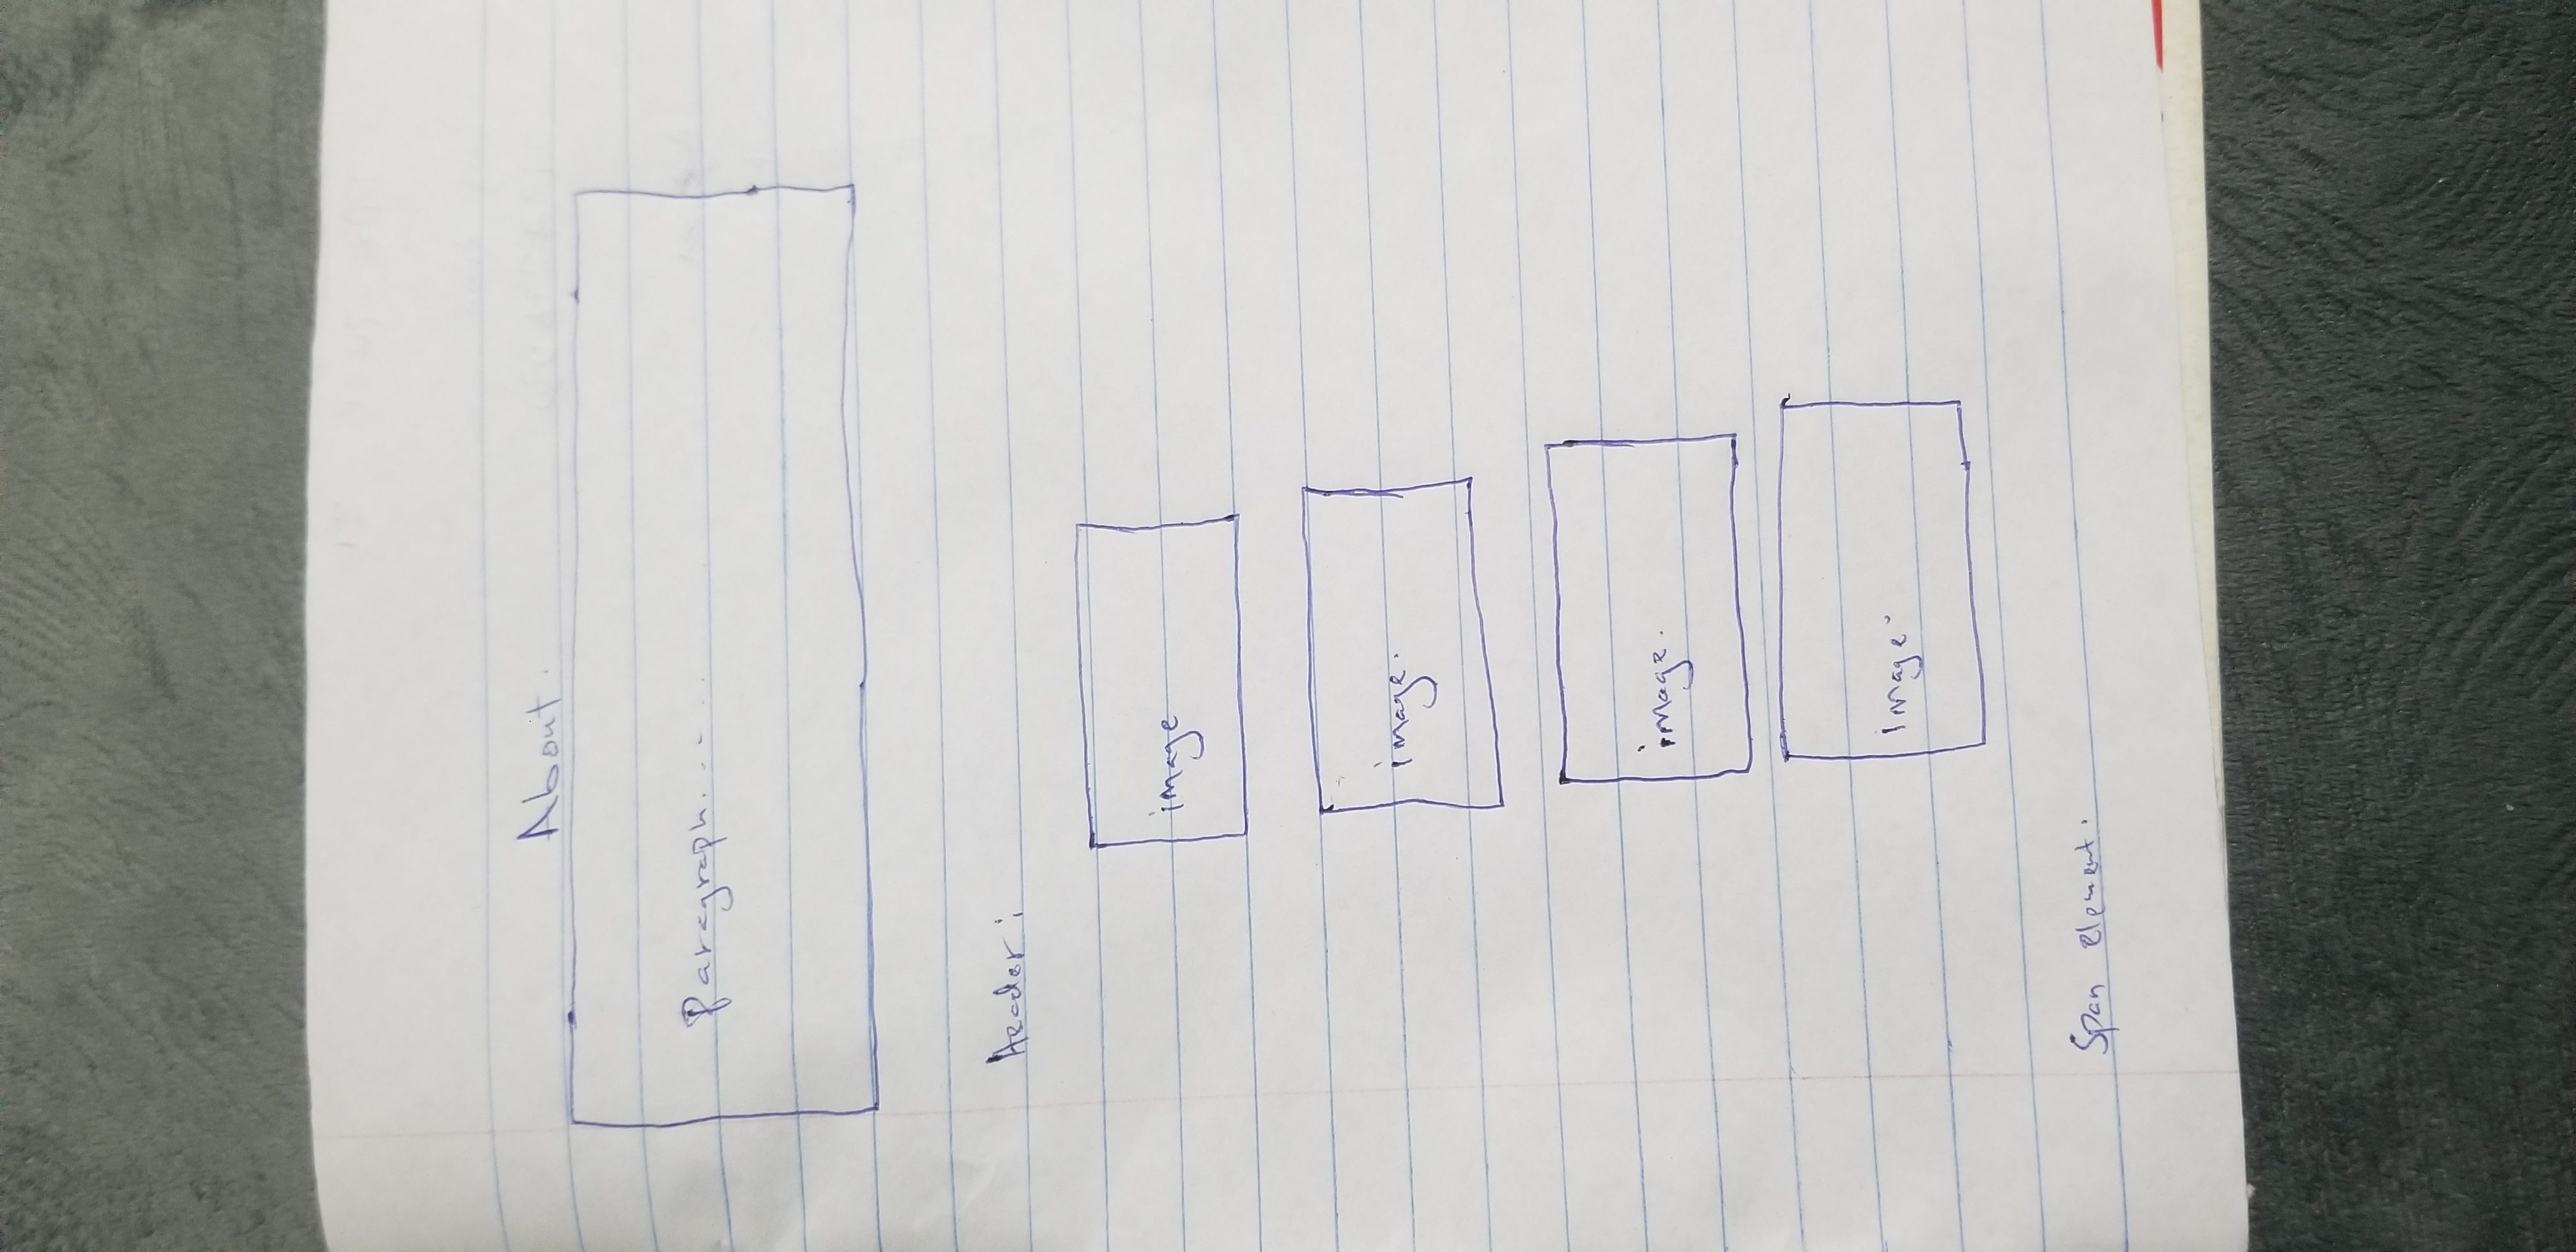 About.
Paragraph......
Header:
image
image.
image.
image.
Span element.